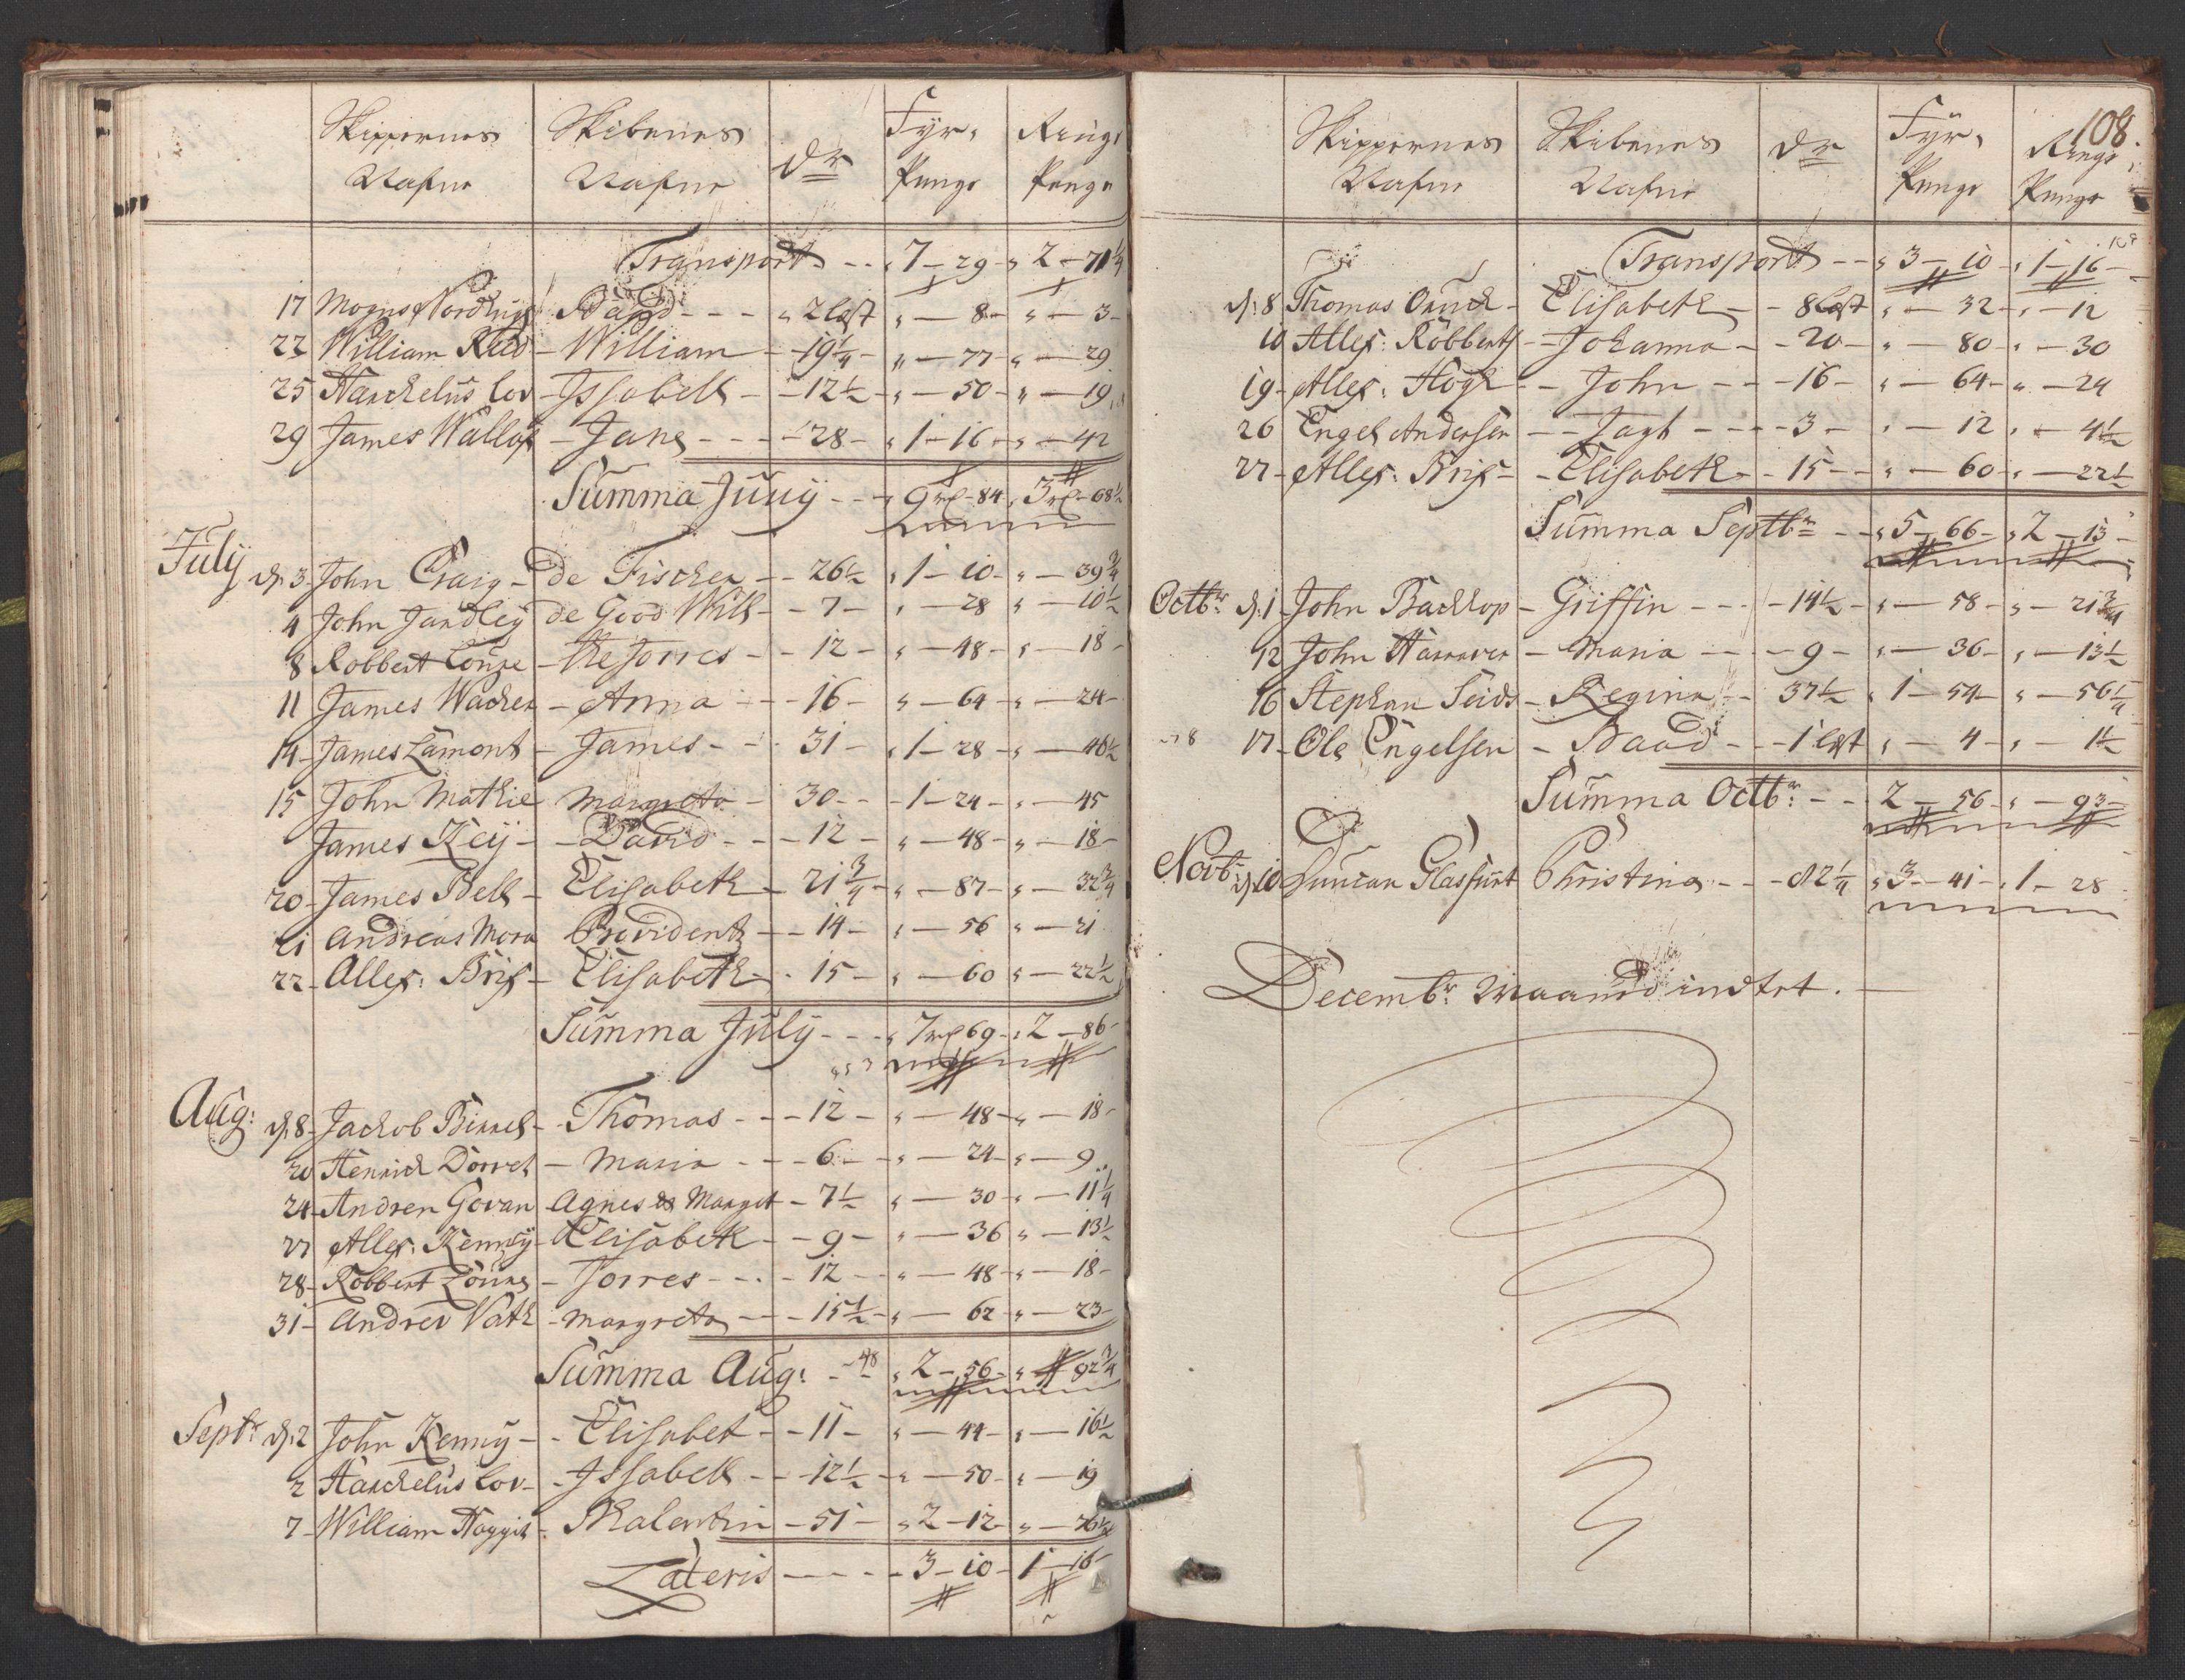 Skippernes Skibenes Dr Fyr- Ring-
Nafne Nafne Penge Penge
Transport - - „ 7 – 29 – „ 2 – 71 1/4
17 Mogns Nordlugs Baad - - - „ 2 lest „ – 8 – „ – 3 –
22 William Reed – William – 19 1/4 – „ – 77 – „ – 29
25 Harchelus Cov – Jssabell – 12 1/2 – „ – 50 – „ – 19
29 James Wallop – Jane - - - 28 – „ 1 – 16 – „ – 42
Summa Junij - - „ 9 rd – 84 „ 3 rd – 68 1/2
July d. 3 – John Craig – de Fischer – 26 1/2 „ 1 – 10 – „ – 39 3/4
4 John Jandley de Good Will – 7 – „ – 28 „ – 10 1/2
8 Robbert – Torres – 12 – „ – 48 – „ – 18 –
11 James Wacker – Anna – 16 – „ – 64 – „ – 24 –
14 – James Lamont – James - - 31 – „ 1 – 28 – „ – 46 1/2
15 John Mathie Margreta – 30 - - 1 – 24 – „ – 45
James Keij – David - - 12 – „ – 48 – „ – 18 –
20 – James Bell – Elisabeth – 21 3/4 – „ – 87 – „ – 32 3/4
21 Andreas Mora Providentz – 14 – „ – 56 „ – 21
22 – Allex: Bris – Elisabeth – 15 – „ – 60 „ – 22 1/2
Summa July - - „ 7 rd 69 – „ 2 – 86 –
Aug: d. 8 – Jackob Binnel – Thomas - - 12 – „ – 48 – „ – 18 –
20 Henrich Dorret – Maria - - 6 – „ – 24 – „ – 9
24 – Andrew Govan Agnes & Margret – 7 1/2 „ – 30 – „ – 11 1/4
27 Allex: Kennij – Elisabeth – 9 – „ – 36 „ – 13 1/2
28 – Robbert – Torres - - - 12 – „ – 48 – „ – 18 –
31 – Andrev Vath – Margreta – 15 1/2 – „ – 62 – „ – 23 –
Summa Aug: „ 2 – 56 – „ 92 3/4
Septr d. 2 John Kennij – Elisabet – 11 – „ – 44 – „ – 16 1/2
2 Harchelus Cov – Jssabell – 12 1/2 – „ – 50 – „ – 19
7 – William Haggis – – 51 – „ 2 – 12 – „ – 76 1/2
Lateris - - - 3 – 10 – 1 – 16 –
108.
Skippernes Skibenes Dr Fyr- Ring-
Nafne Nafne Penge Penge
Transport - - „ 3 – 10 – „ 1 – 16 –
d. 8 Thomas – Elisabeth – 8 lest „ – 32 – „ – 12
10 Allex: Robberts – Johanna – 20 – „ – 80 – „ – 30
19 – Allex: Hogh – John - - 16 – „ – 64 – „ – 24
26 Engel Andersen – Jagt - - - 3 – „ – 12 „ – 4 1/2
27 – Allex: Bris – Elisabeth – 15 – „ – 60 „ – 22 1/2
Summa Septbr - - „ 5 – 66 – „ 2 – 13 –
Octbr d. 1 – John Backop – Griffin - - - 14 1/2 – „ – 58 – „ – 21 3/4
12 John Hannaver – Maria - - - 9 – „ – 36 – „ – 13 1/2
16 Stephan Seids – Regina – 37 1/2 „ 1 – 54 – „ – 56 1/4
17 – Ole Engelsen – Baad - - 1 lest „ – 4 – „ – 1 1/2
Summa Octbr - - 2 – 56 – „ – 93 –
Novbr d. 10 Duncan Glasfurt Christina - - 82 1/4 „ 3 – 41 – „ 1 – 28
Decembr Maaned indtet. –